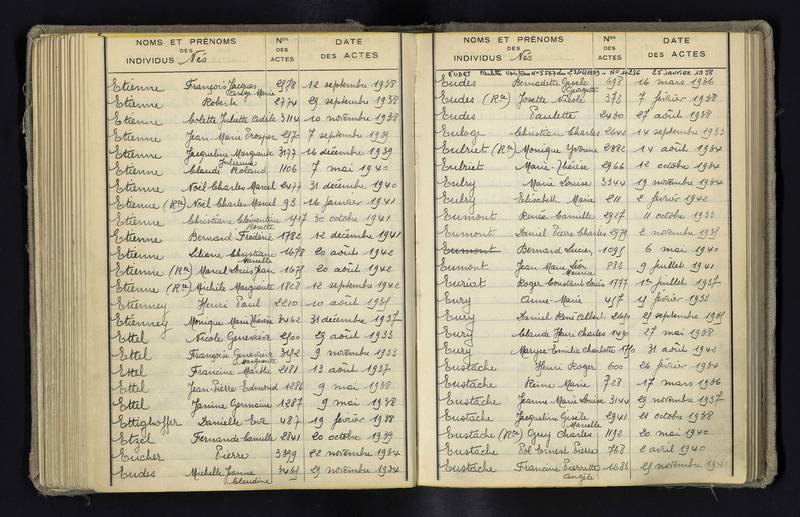 NOMS ET PRÉNOMS
DES
INDIVIDUS Nés
Nos
DES
ACTES
DATE
DES ACTES
Etienne François Jacques 2978 12 septembre 1938
Marie
Etienne Roberte 2774 29 septembre 1938
Etienne Colette Juliette Adèle 3114 10 novembre 1938
Etienne Jean Marie Prosper 2970 7 septembre 1939
Etienne Jacqueline Marguerite 3177 16 décembre 1939
Julienne
Etienne Claude Roland 1106 7 mai 1940
Etienne Noël Charles Marcel 2477 31 décembre 1940
Etienne (Ra) Noël Charles Marcel 93 16 janvier 1941
Etienne Christiane Clémentine 30 octobre 1941
Rosette
Etienne Bernard Frédéric 1782 12 décembre 1941
Etienne Liliane Christiane 1678 20 août 1942
Etienne (Ra) Marcel Louis Jean 20 août 1942
Etienne (Ra) Michèle Marguerite 1828 12 septembre 1942
Etienney Henri Paul 2210 10 août 1935
Etienney Monique Marie Thérèse 3462 31 décembre 1937
Ettel Nicole Geneviève 2500 29 août 1933
Ettel Françoise Geneviève 3192 9 novembre 1933
Marguerite
Ettel Francine Marthe 2181 13 août 1937
Ettel Jean Pierre Edmond 1286 9 mai 1938
Ettel Janine Germaine 1287 9 mai 1938
Ettighoffer Danielle Eve 487 19 février 1938
Etzel Fernande Camille 2841 20 octobre 1939
Eucher Pierre 3399 22 novembre 1934
Eudes Michelle Jeanne 3465 29 novembre 1934
Claudine
NOMS ET PRÉNOMS
DES
INDIVIDUS Nés
Nos
DES
ACTES
DATE
DES ACTES
EUDES Paulette 25 JANVIER 1938
Eudes Bernadette Gisèle 698 16 mars 1936
Georgette
Eudes (Ra) Josette Nicole 373 7 février 1938
Eudes Paulette 2430 27 août 1938
Euloge Christian Charles 2645 14 septembre 1933
Eulriet (Ra) Monique Yvonne 2882 14 août 1934
Eulriet Marie-Thérèse 2966 12 octobre 1934
Eulry Marie Louise 3344 19 novembre 1934
Eulry Elisabeth Marie 211 2 février 1942
Eumont Renée Camille 2927 11 octobre 1933
Eumont Daniel Pierre Charles 2979 2 novembre 1935
Eumont Bernard Lucien 1095 6 mai 1940
Eumont Jean Marie Léon 886 9 juillet 1941
Maurice
Euriat Roger Constant Louis 1777 1er juillet 1937
Eury Anne-Marie 457 11 février 1933
Eury Daniel René Albert 2640 29 septembre 1935
Eury Claude Henri Charles 1490 27 mai 1938
Eury Maryse Emilie Charlotte 1750 31 août 1942
Eustache Henri Roger 600 26 février 1934
Eustache Reine Marie 728 17 mars 1936
Eustache Jeanne Marie Louise 3144 29 novembre 1937
Eustache Jacqueline Gisèle 2941 21 octobre 1938
Marcelle
Eustache (Ra) Guy Charles 1192 20 mai 1940
Eustache Pol Ernest Pierre 768 2 avril 1940
Eustache Francine Pierrette 1686 25 novembre 1941
Angèle